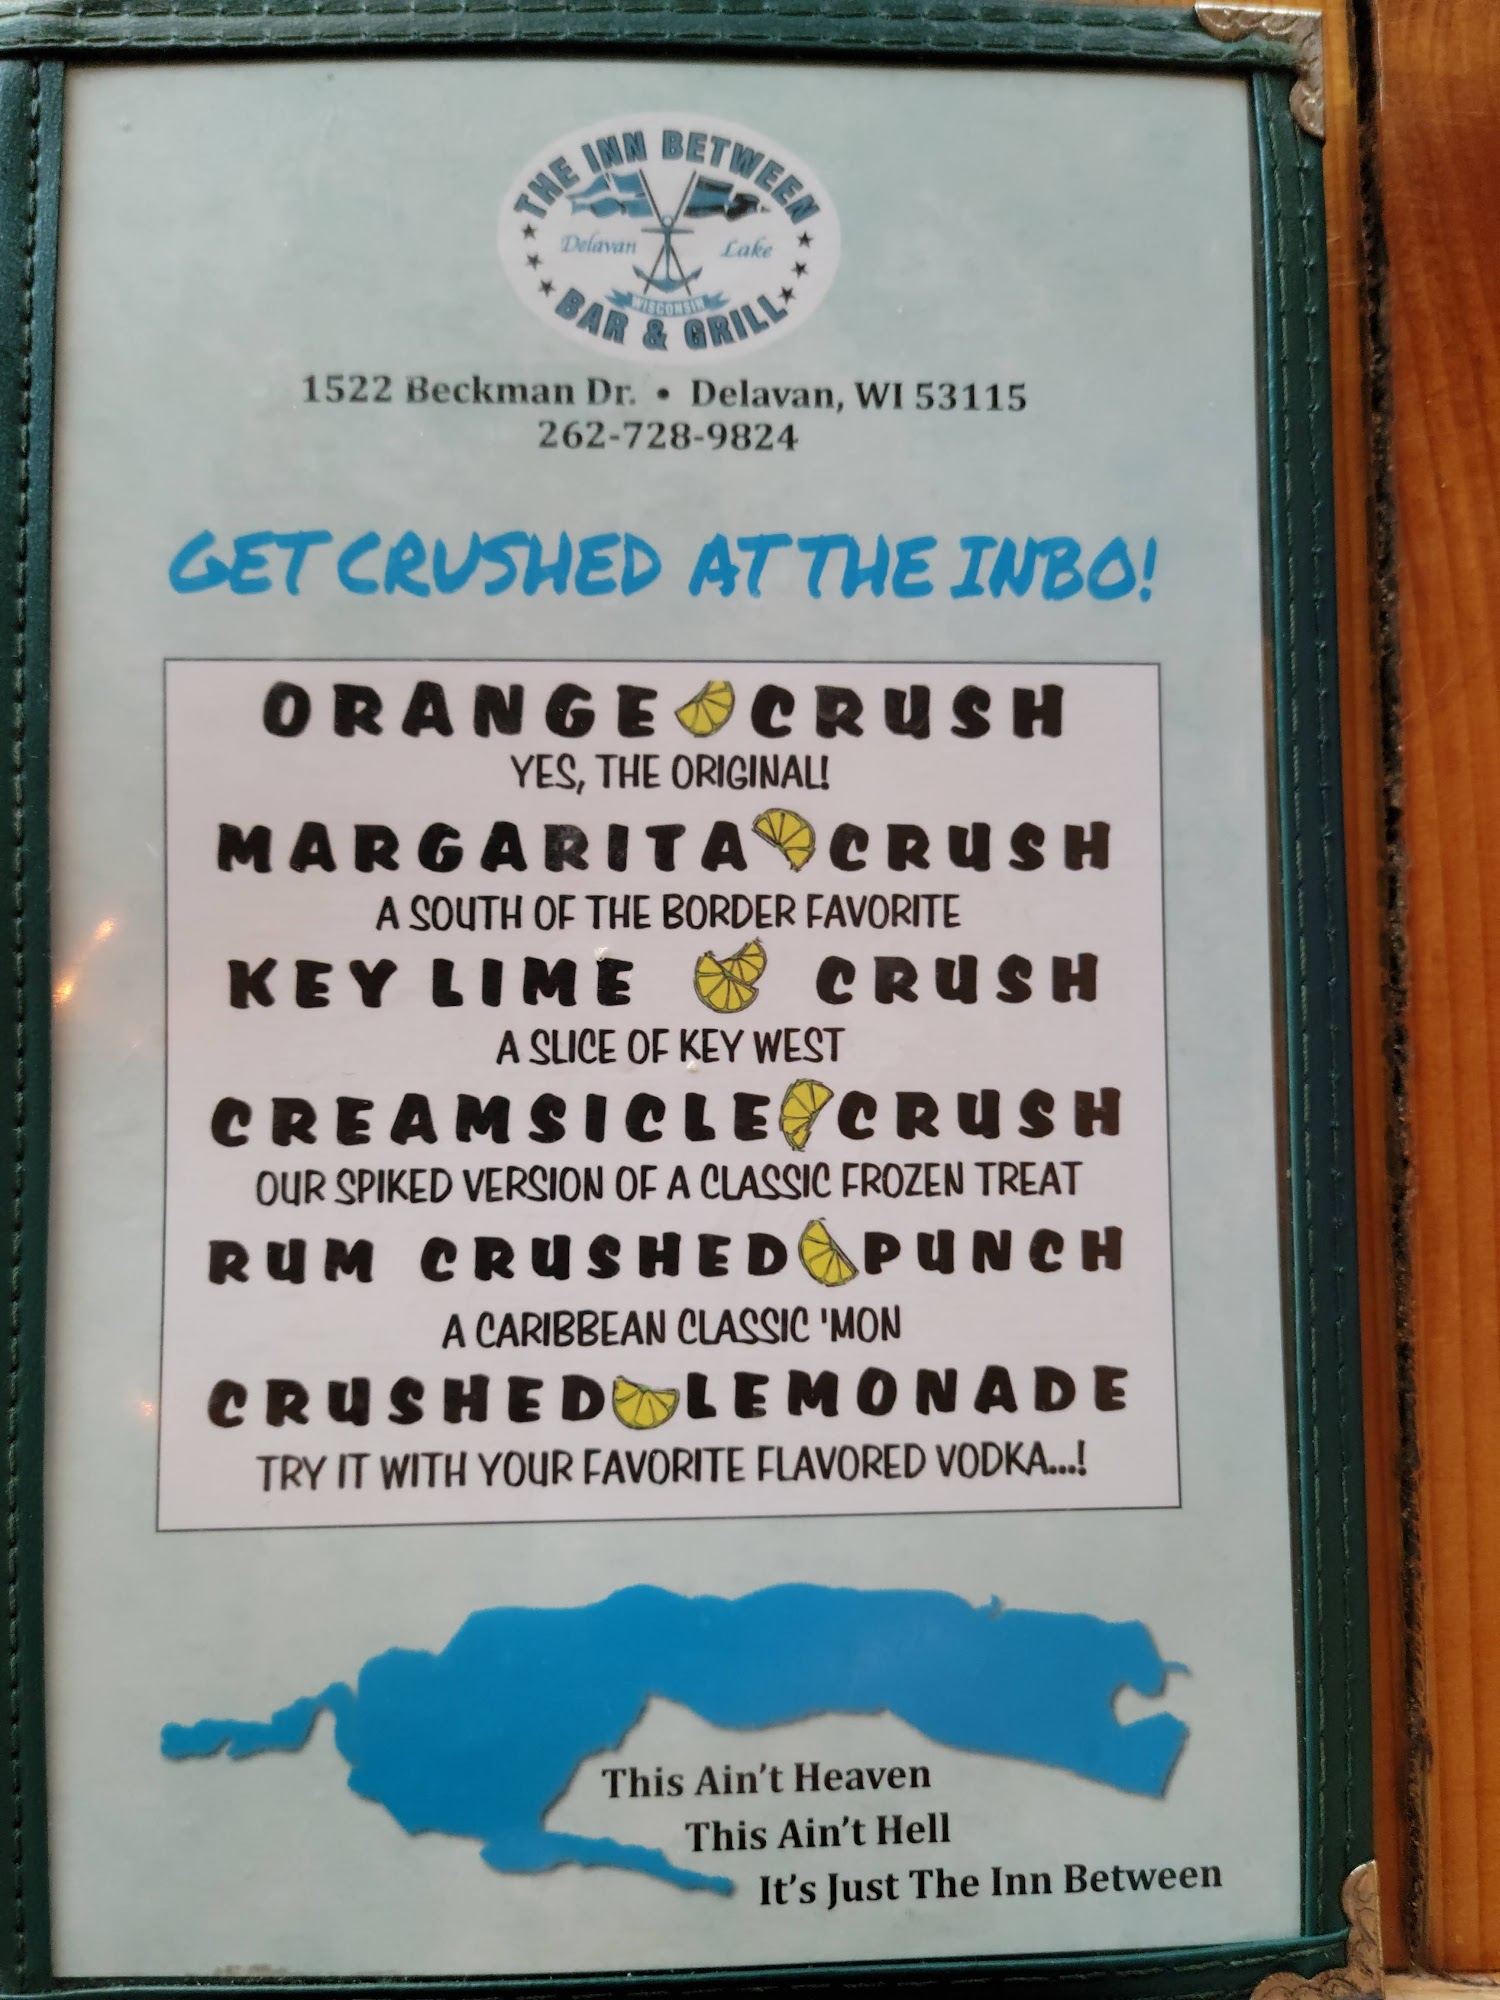 THE INN BETWEEN
Delavan Lake
WISCONSIN
BAR & GRILL
1522 Beckman Dr. • Delavan, WI 53115
262-728-9824
GET CRUSHED AT THE INBO!
ORANGE CRUSH
YES, THE ORIGINAL!
MARGARITA CRUSH
A SOUTH OF THE BORDER FAVORITE
KEY LIME CRUSH
A SLICE OF KEY WEST
CREAMSICLE CRUSH
OUR SPIKED VERSION OF A CLASSIC FROZEN TREAT
RUM CRUSHED PUNCH
A CARIBBEAN CLASSIC 'MON
CRUSHED LEMONADE
TRY IT WITH YOUR FAVORITE FLAVORED VODKA...!
This Ain't Heaven
This Ain't Hell
It's Just The Inn Between